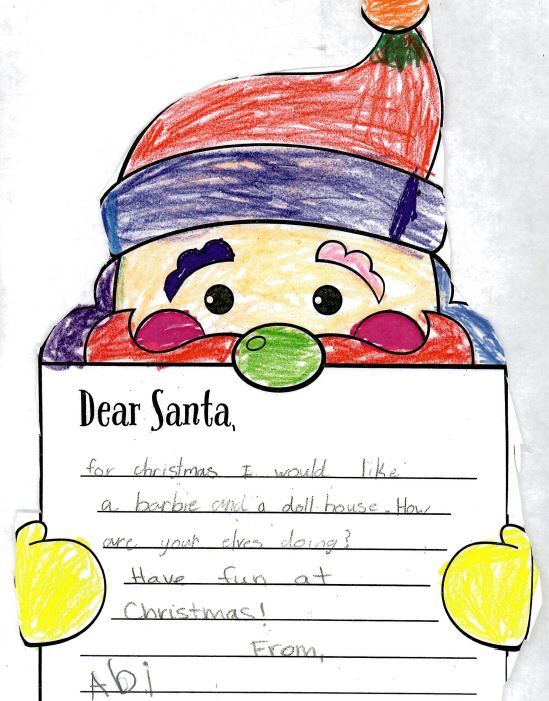 Dear Santa,
for christmas I would like
a barbie and a doll house. How
are your elves doing?
Have fun at
Christmas!
From,
Abi